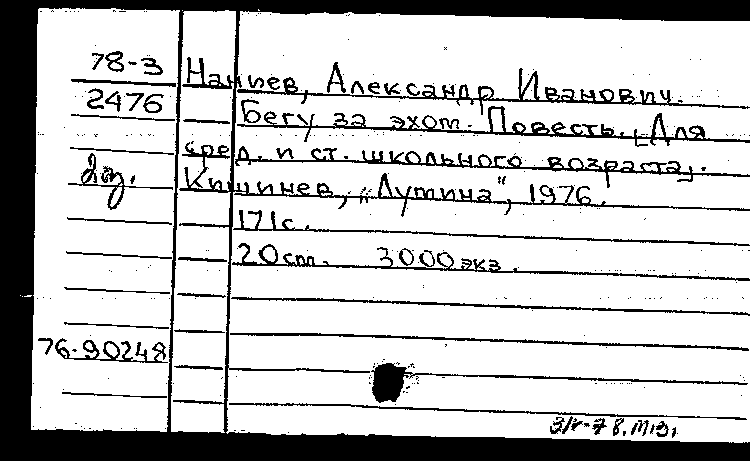 78-3
Наниев, Александр Иванович.
2476
Бегу за эхом. Повесть. [Для
сред. и ст. школьного возраста].
Кишинев, „Лумина", 1976.
171 с.
20 см. 3000 экз.
76-90248